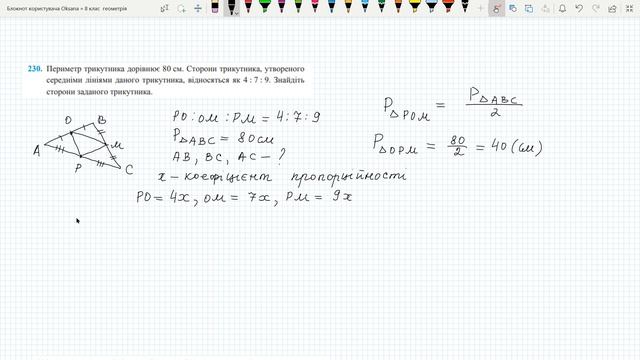 Блокнот користувача Oksana » 8 клас геометрія
230. Периметр трикутника дорівнює 80 см. Сторони трикутника, утвореного
середніми лініями даного трикутника, відносяться як 4 : 7 : 9. Знайдіть
сторони заданого трикутника.
A
O
B
M
P
C
PO : OM : PM = 4 : 7 : 9
P△ABC = 80 см
AB, BC, AC – ?
x – коефіцієнт пропорційности
PO = 4x, OM = 7x, PM = 9x
P△POM = P△ABC / 2
P△OPM = 80/2 = 40 (см)